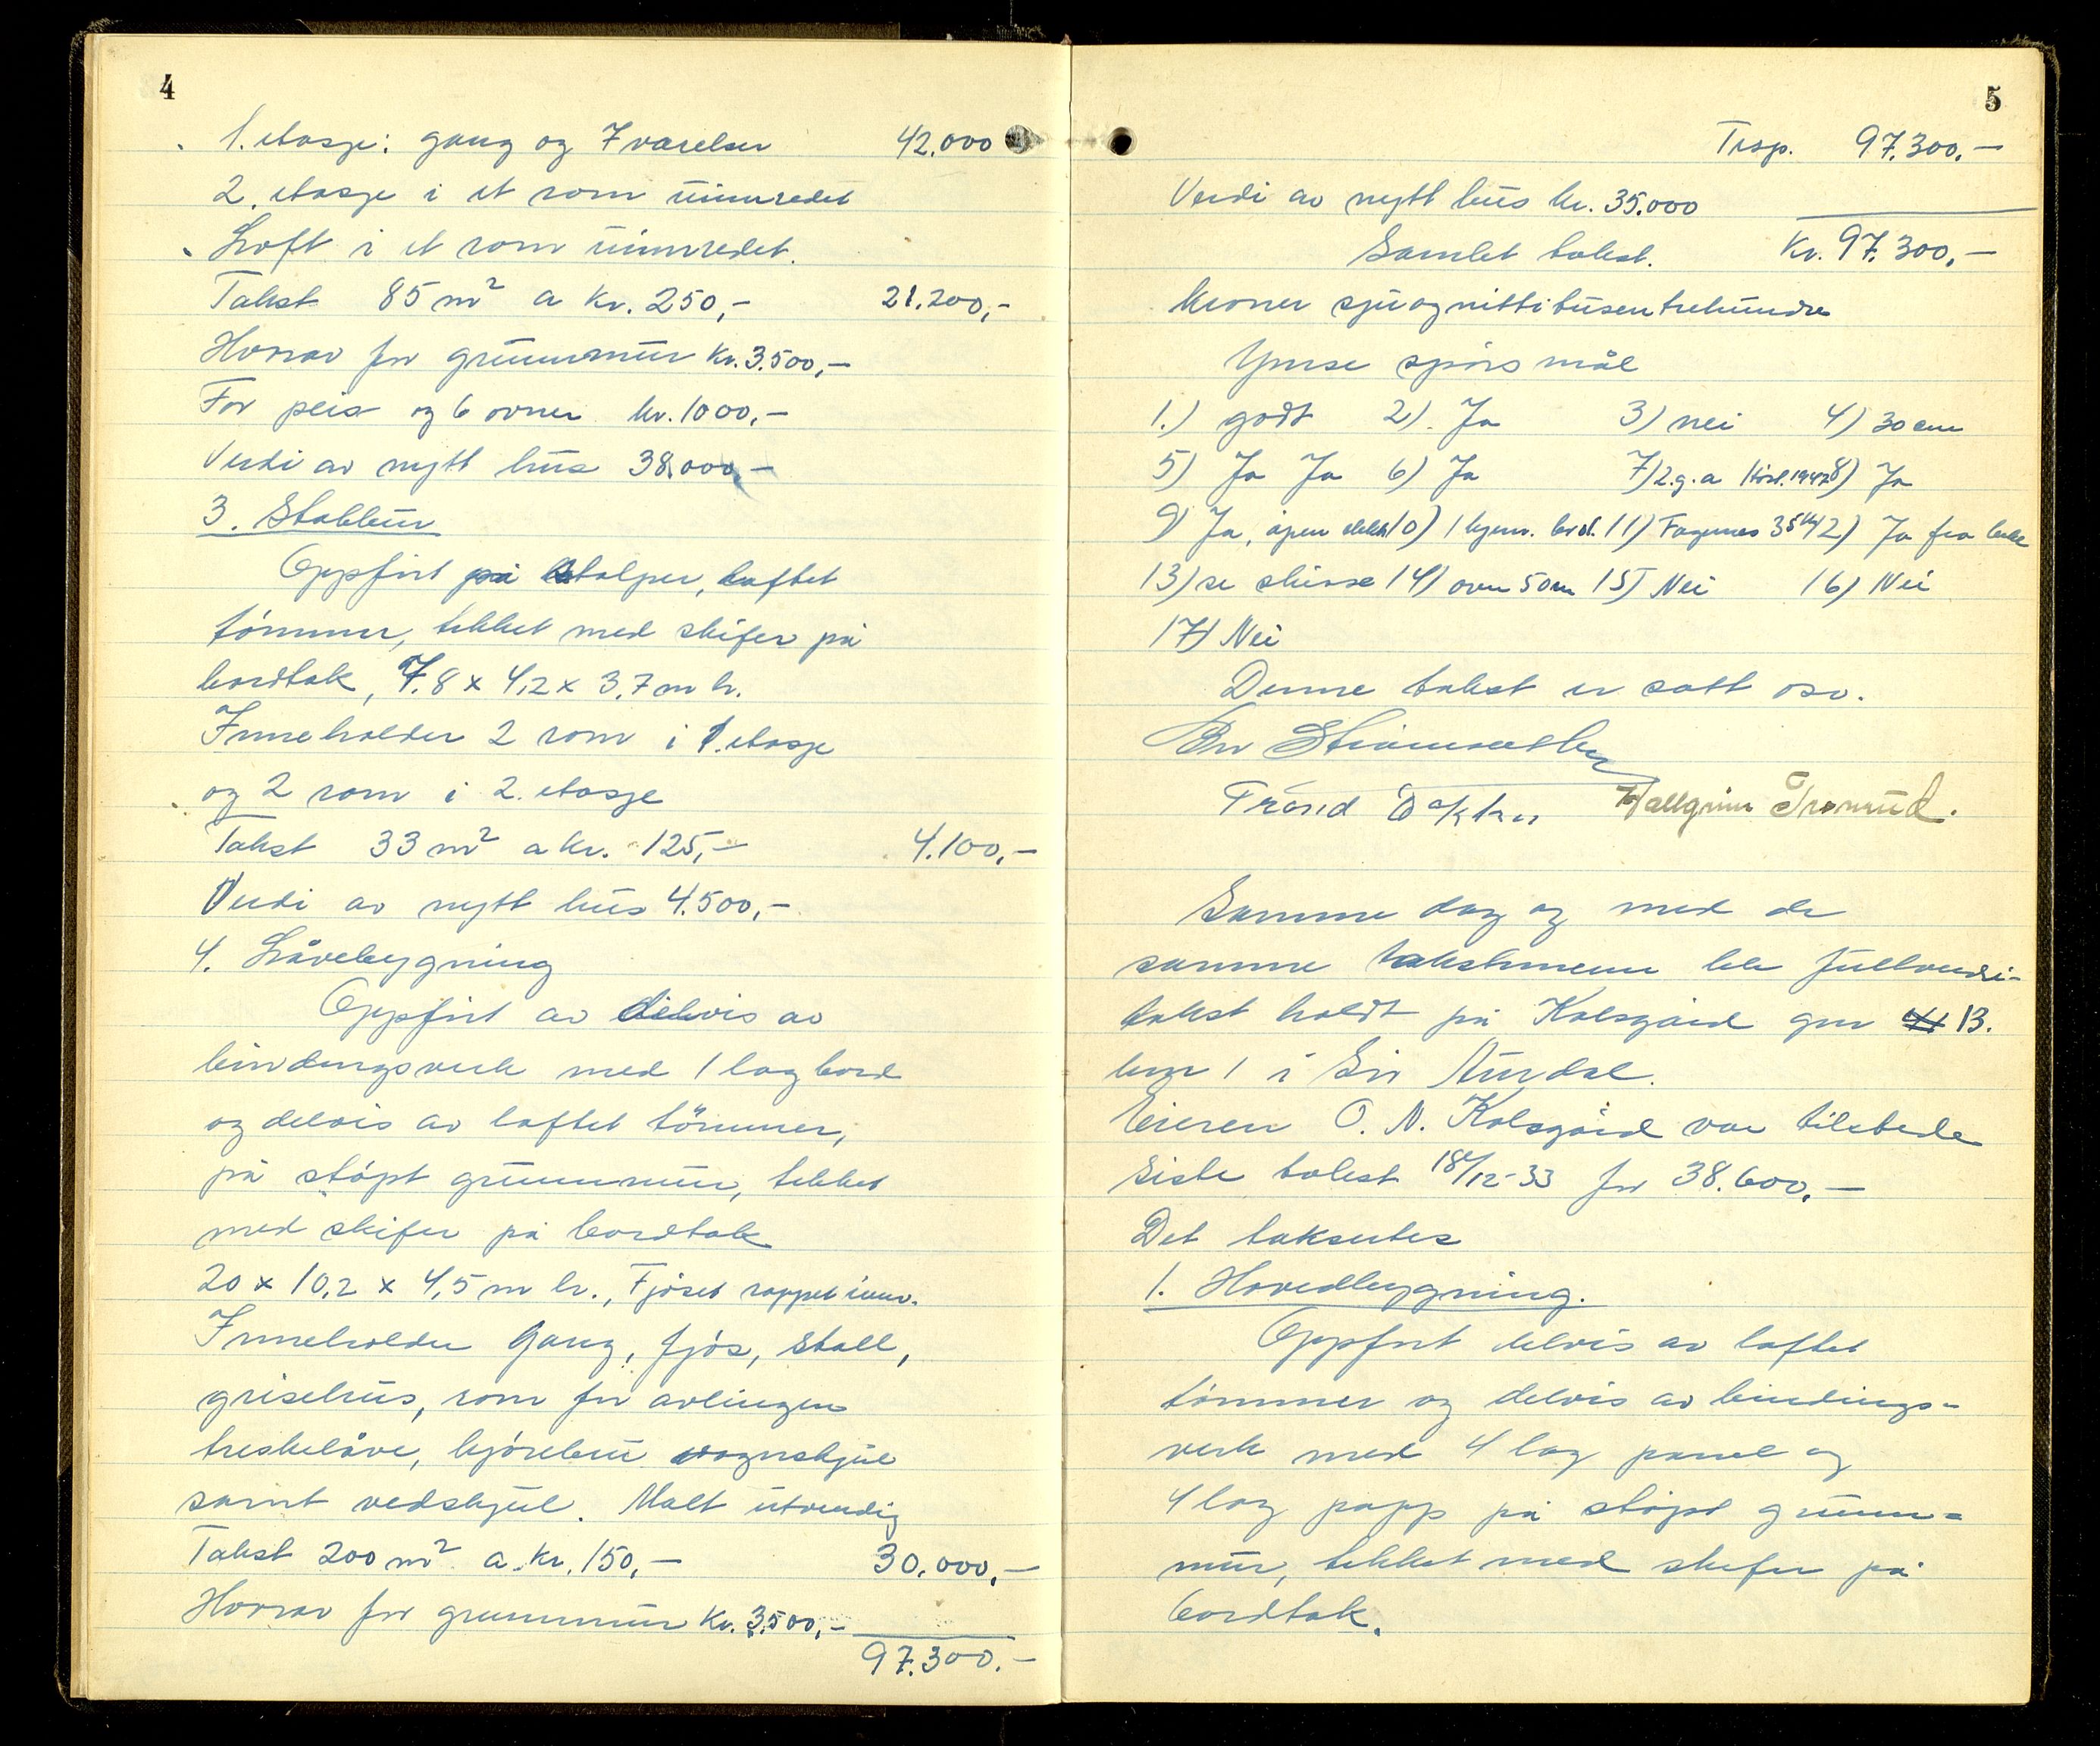 4
1. etasje: gang og 7 værelser 42.000
2. etasje i et rom uinnredet
Loft i et rom uinnredet.
Takst 85 m² a kr. 250,- 21.200,-
Horrav for grunnmur kr. 3.500,-
For peis og 6 ovner kr. 1000,-
Verdi av nytt hus 38.000,-
3. Stabbur
Oppført på stolper, laftet
tömmer, tekket med skifer på
bordtak, 7.8 x 4,2 x 3,7 m h.
Inneholder 2 rom i 1. etasje
og 2 rom i 2. etasje
Takst 33 m² a kr. 125,- 4.100,-
Verdi av nytt hus 4.500,-
4. Låvebygning
Oppført av delvis av
bindingsverk med 1 lag bord
og delvis av laftet tömmer,
på støpt grunnmur, tekket
med skifer på bordtak
20 x 10,2 x 4,5 m h., Fjöset rappet innv.
Inneholder Gang, fjös, stall,
grisehus, rom for avlingen
treskelåve, kjörebru vognskjul
samt vedskjul. Malt utvendig
Takst 200 m² a kr. 150,- 30.000,-
Horrav for grunnmur kr. 3.500,-
97.300.-
5
Trsp. 97.300.-
Verdi av nytt hus kr. 35.000
Samlet takst. Kr. 97.300,-
kroner sjuognittitusentrehundre
Ymse spörsmål
1.) godt 2). Ja 3) nei 4) 30 cm
5) Ja Ja 6) Ja 7) 2.g.a 1947 8) Ja
9) Ja, åpen 10) 1 kjem. 11) Fagernes 35 km 12) Ja fra bekk
13) se skisse 14) over 50 m 15) Nei 16) Nei
17) Nei
Denne takst er satt osv.
Trond Hallgrim
Samme dag og med de
samme takstmenn ble fullverdi-
takst holdt på Kolsgård gnr 13.
bnr 1 i Sör Aurdal.
Eieren O. N. Kolsgård var tilstede
Siste takst 18/12-33 for 38.600,-
Det taksertes
1. Hovedbygning.
Oppført delvis av laftet
tömmer og delvis av bindings-
verk med 4 lag panel og
4 lag papp på støpt grunn-
mur, tekket med skifer på
bordtak.